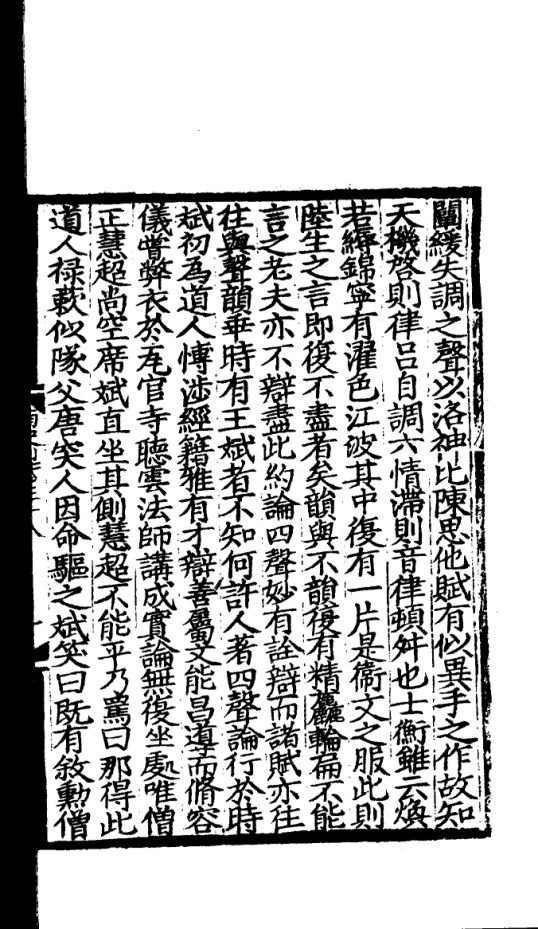 闡緩失調之聲以洛神比陳思他賦有似異手之作故知
天機啓則律呂自調六情滯則音律頓舛也士衡雖云煥
若縟錦寧有濯色江波其中復有一片是衞文之服此則
陸生之言即復不盡者矣韻與不韻復有精麤輪扁不能
言之老夫亦不辯盡此約論四聲妙有詮辯而諸賦亦往
往與聲韻乖時有王斌者不知何許人著四聲論行於時
斌初為道人愽涉經籍雅有才辯善屬文能昌導而脩容
儀嘗弊衣於瓦官寺聽雲法師講成實論無復坐處唯僧
正慧超尚空席斌直坐其側慧超不能平乃罵曰那得此
道人禄蔌似隊父唐突人因命驅之斌笑曰既有敘勳僧